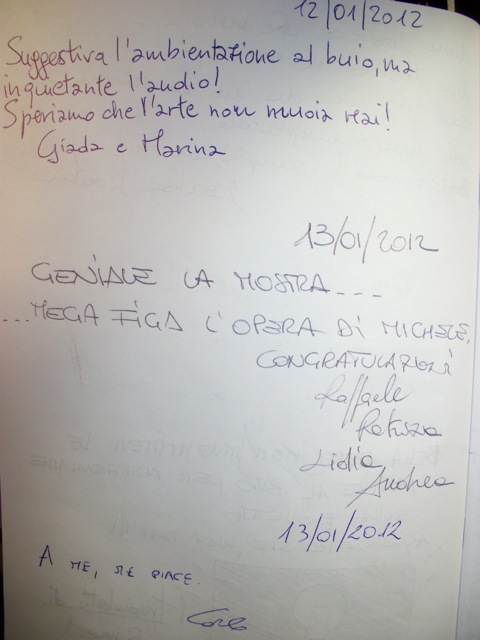 12/01/2012
Suggestiva l'ambientazione al buio, ma
inquietante l'audio!
Speriamo che l'arte non muoia mai!
Giada e Marina
13/01/2012
GENIALE LA MOSTRA---
...MEGA FIGA L'OPERA DI MICHELE.
CONGRATULAZIONI
Raffaele
Lidia
Andrea
13/01/2012
A ME, ME PIACE.